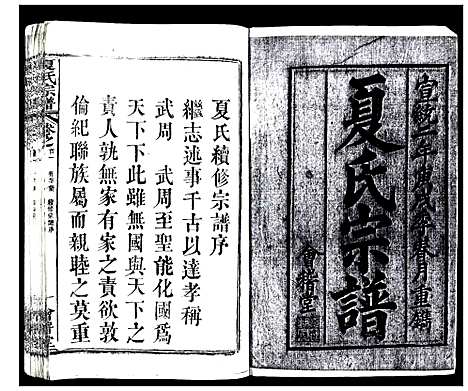 宣統二年庚戌季春月重鐫
夏氏宗譜
會稽堂
夏氏續修宗譜序
繼志述事千古以達孝稱
武周 武周至聖能化國爲
天下下此雖無國與天下之
責人孰無有家之責欲敦
倫紀聯族屬而親睦之莫重
夏氏宗譜
會稽堂